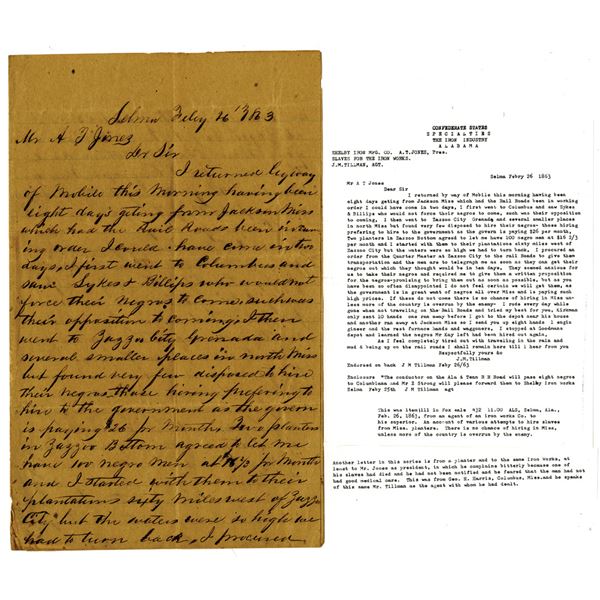 Selma Feby 26 1863
Mr A T Jones
Der Sir
I returned by way
of Mobile this Morning having been
Eight days geting from Jackson Miss
which had the Rail Roads been in runing
order I could have come in two
days, I first went to Columbus and
saw Sykes & Billips who would not
force their Negros to come, such was
their opposition to coming. I then
went to Yazzo City Grenada and
several smaller places in north Miss
but found very few disposed to hire
their Negros those having prefering to
hire to the government as the govern
is paying $26 per Month. Two planters
in Yazzoo Bottom agreed to let me
have 100 negro men at 16 2/3 pr Month
and I started with them to their
plantations sixty miles west of Yazzo
City but the waters were so high we
had to turn back, I procured
CONFEDERATE STATES
SPECIALTIES
THE IRON INDUSTRY
ALABAMA
SHELBY IRON MFG. CO. A.T.JONES, Pres.
SLAVES FOR THE IRON WORKS.
J.M.TILLMAN, AGT.
Selma Febry 26 1863
Mr A T Jones
Dear Sir
I returned by way of Mobile this morning having been
eight days geting from Jackson Miss which had the Rail Roads been in working
order I could have come in two days, I first went to Columbus and saw Sykes
& Billijs who would not force their negros to come, such was their opposition
to coming. I then went to Zazzoo City Grenada and several smaller places
in north Miss but found very few disposed to hire their negros- those hiring
prefering to hire to the government as the govern is paying $26 per month,
Two planters in Zazzoo Bottom agreed to let me have 100 negro men at 16 2/3
per month and I started with them to their plantations sixty miles west of
Zazzoo City but the waters were so high we had to turn back, I procured an
order from the Quarter Master at Zazzoo City to the rail Roads to give them
transportation and the men were to telegraph me as soon as they can get their
negros out which they thought would be in ten days. They seemed anxious for
us to take their negros and required me to give them a written preposition
for the negros-promising to bring them out as soon as possible, but as you
have been so often disappointed I do not feel certain we will get them, as
the government is in great want of negros all over Miss and is paying such
high prices. If these do not come there is no chance of hiring in Miss un-
less more of the country is overun by the enemy- I rode every day while
gone when not traveling on the Rail Roads and tried my best for you, Kirkman
only sent 10 hands one ran away before I got to the depot near his house
and another ran away at Jackson Miss so I send you up eight hands 1 engin
gineer and the rest furnace hands and waggoners. I stopped at Goodmans
depot and learned the negros Mr Kay left had been hired out again,
As I feel completely tired out with traveling in the rain and
mud & being up on the rail roads I shall remain here till I hear from you
Respectfully yours &c
J.M.Tillman
Endorsed on back J M Tillman Feby 26/63
Enclosure: "The conductor on the Ala & Tenn R R Road will pass eight negros
to Columbiana and Mr Z Strong will please forward them to Shelby iron works
Selma Feby 25th J M Tillman agt
This was item111d in Fox sale #32 11.00 ALS, Selma, Ala.,
Feb. 26, 1863, from an agent of an iron works Co. to
his superior. An account of various attempts to hire slaves
from Miss. planters. There is no chance of hiring in Miss,
unless more of the country is overun by the enemy.
Another letter in this series is from a planter and to the same iron Works, at
least to Mr. Jones as president, in which he complains bitterly because one of
his slaves had died and he had not been notified and he feared that the man had not
had good medical care. This was from Geo. S. Harris, Columbus, Miss.and he speaks
of this same Mr. Tillman as the agent with whom he had dealt.